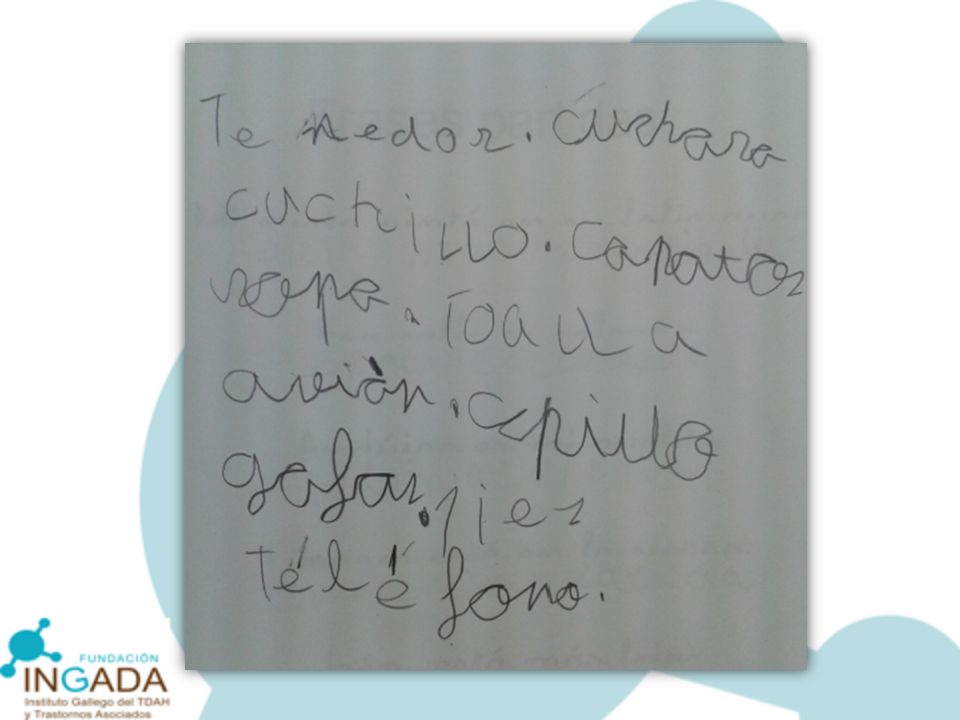 Te nedor. Cúchara
cuchillo. Capatos
ropa. Toalla
avión. cepillo
gafas. pies
téléfono.
FUNDACIÓN
INGADA
Instituto Gallego del TDAH
y Trastornos Asociados